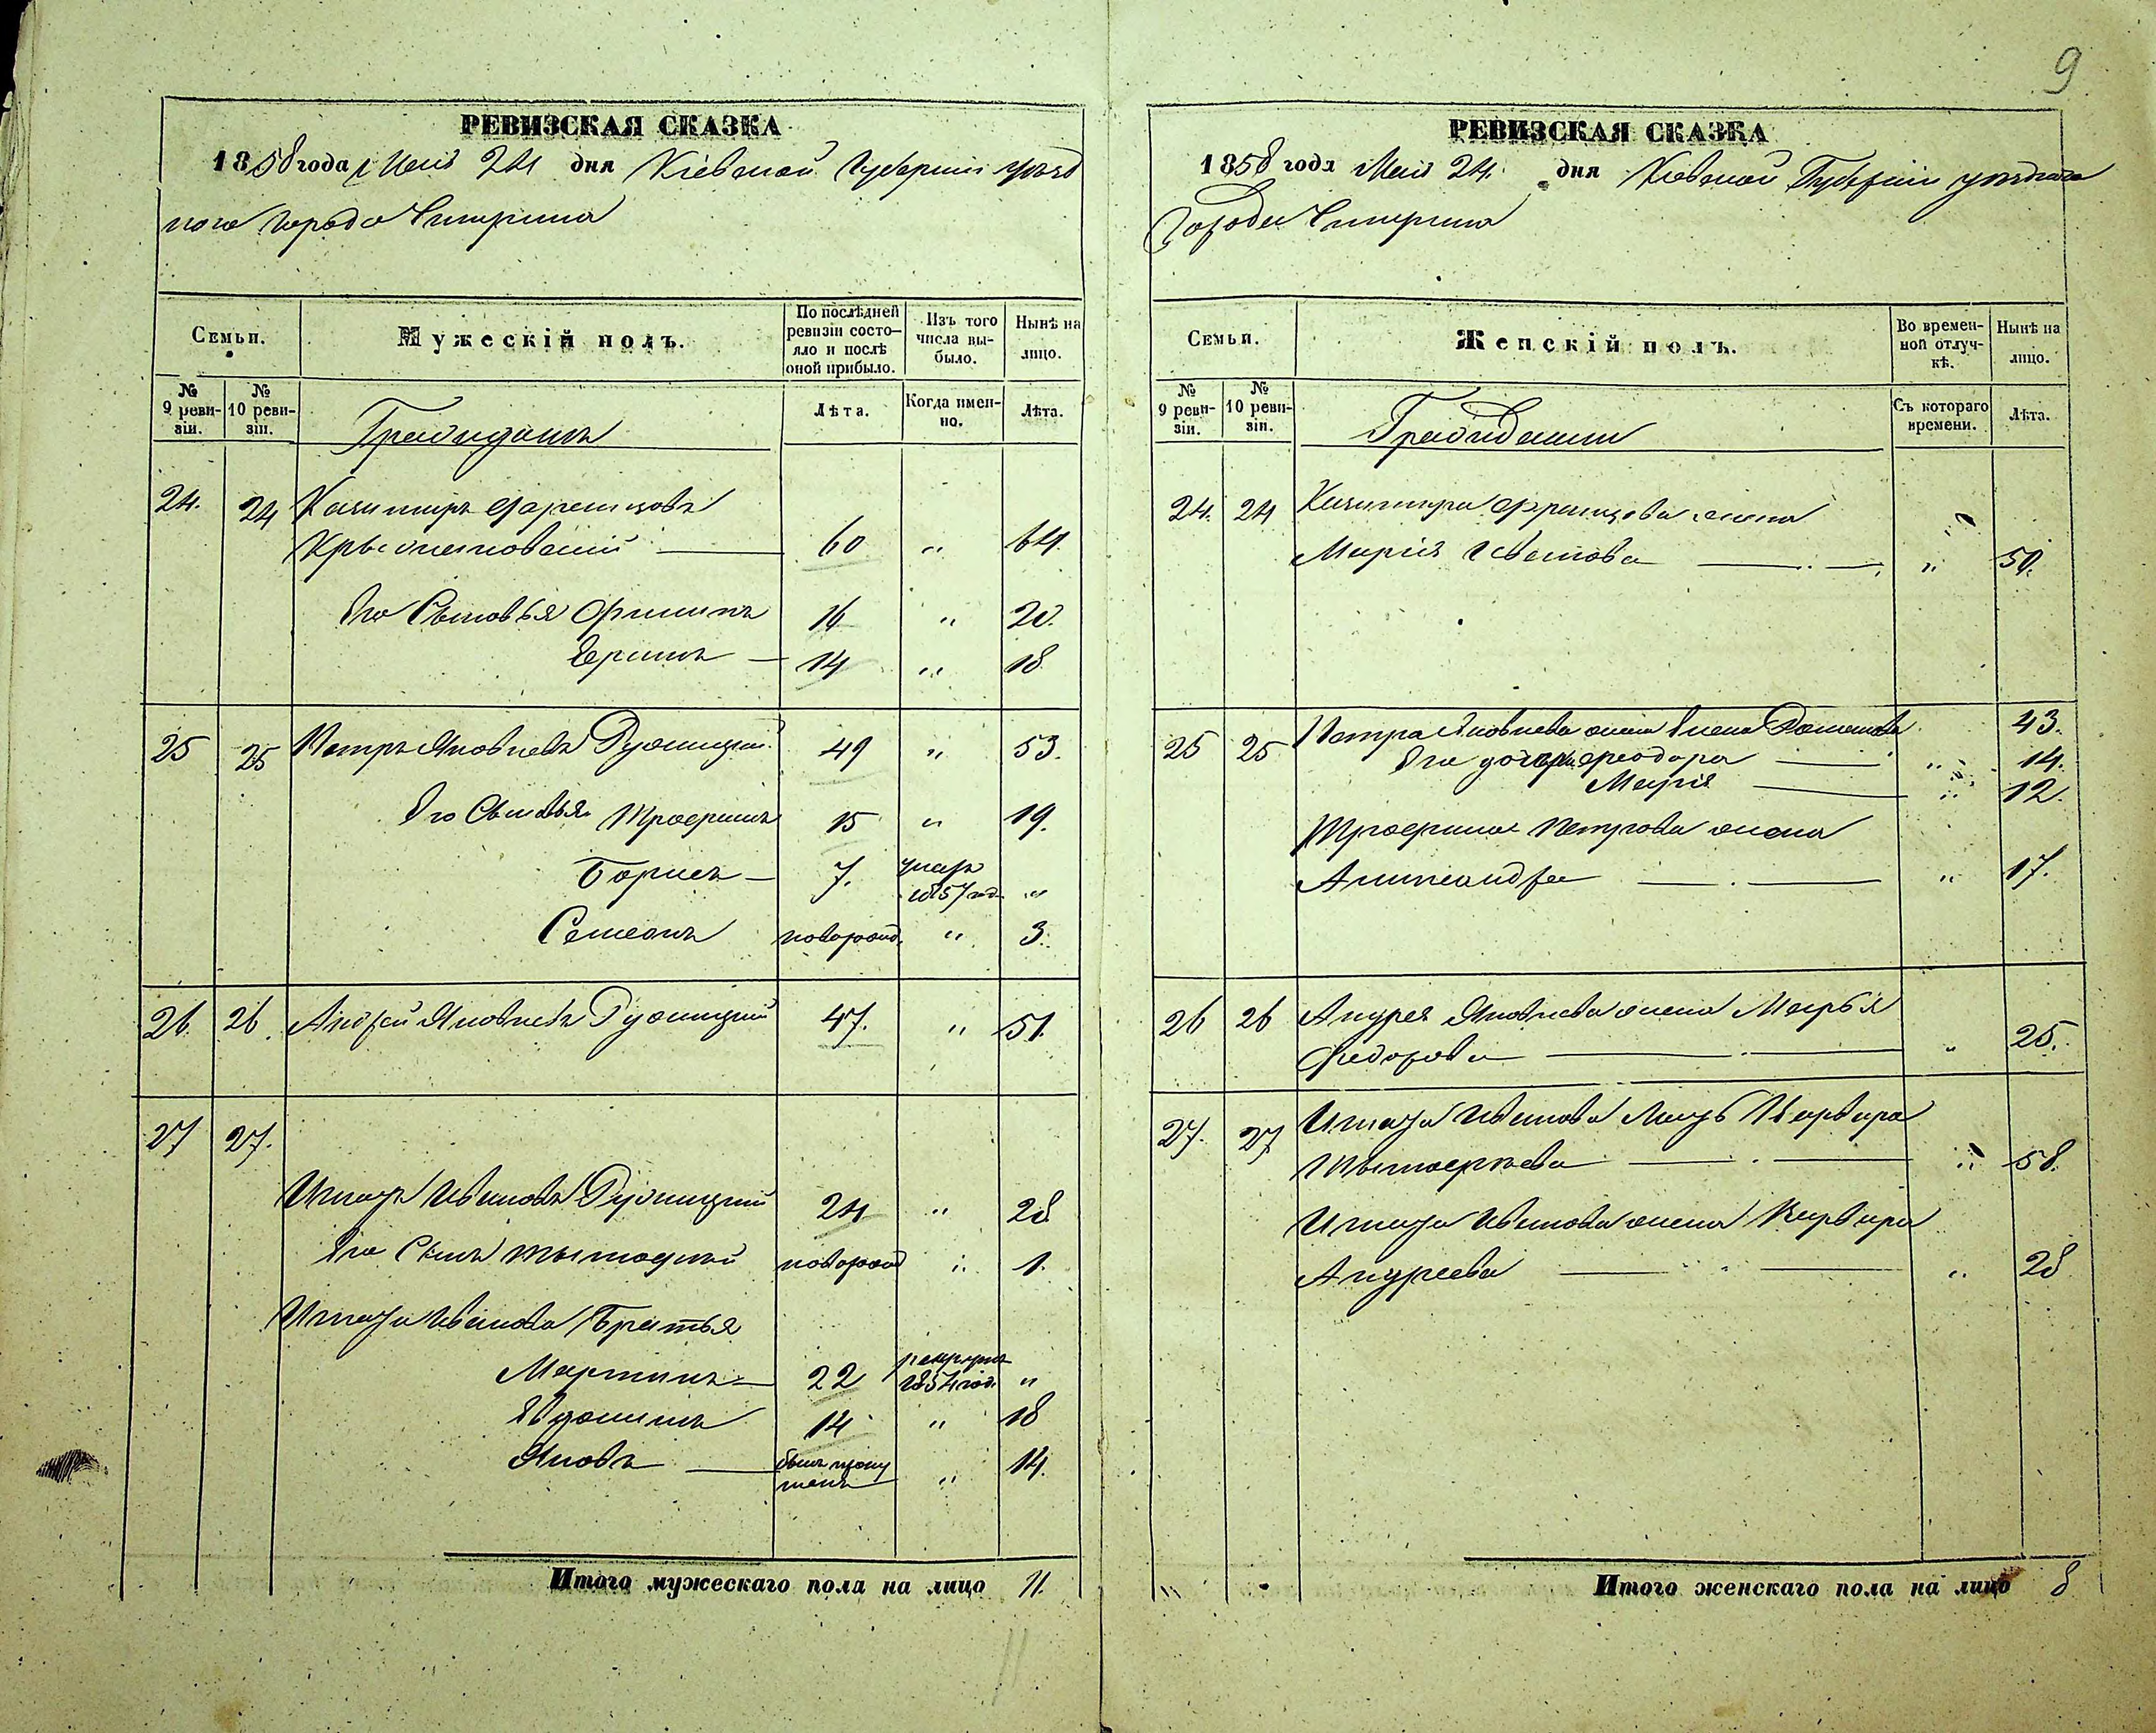 9
РЕВИЗСКАЯ СКАЗКА
1858 года Мая 24 дня Кіевской Губерніи уѣзд
ного города Чигирина
Семьи.
Мужескій полъ.
По послѣдней ревизіи состояло и послѣ оной прибыло.
Изъ того числа выбыло.
Нынѣ на лицо.
№ 9 ревизіи.
№ 10 ревизіи.
Лѣта.
Когда именно.
Лѣта.
Граждане
24. 24 Казимиръ Францовъ
60 " 64.
Его Сыновья Филипъ 16 " 20.
14 " 18
25 25 Петръ Яковлевъ 49 " 53.
Его Сыновья Трофимъ 15 " 19.
Борисъ 7. умеръ
1857 год. "
Семенъ новорожд. " 3.
26. 26. Андрей Яковлевъ 47. " 51.
27 27.
Игнатъ Ивановъ 24 " 28
Его Сынъ Тимофей новорожд " 1.
Игната Иванова Братья
Мартинъ 22 рекрутъ
1854 год. "
Евдокимъ 14 " 18
Яковъ былъ пропу
щенъ " 14.
Итого мужескаго пола на лицо 11.
11
РЕВИЗСКАЯ СКАЗКА
1858 года Мая 24. дня Кіевской Губерніи уѣзднаго
Города Чигирина
Семьи.
Женскій полъ.
Во временной отлучкѣ.
Нынѣ на лицо.
№ 9 ревизіи.
№ 10 ревизіи.
Съ котораго времени.
Лѣта.
Гражданки
24. 24 Казимира Францова жена
Марія " 50.
25 25 Петра Яковлева жена Елена 43.
Его дочери Феодора " 14.
Марія " 12.
Трофима Петрова жена
Александра " 17.
26 26 Андрея Яковлева жена Марья
Федорова " 25.
27. 27 Игната Иванова Мать Варвара
Тимофеева " 58.
Игната Иванова жена Варвара
Андреева " 28
Итого женскаго пола на лицо 8